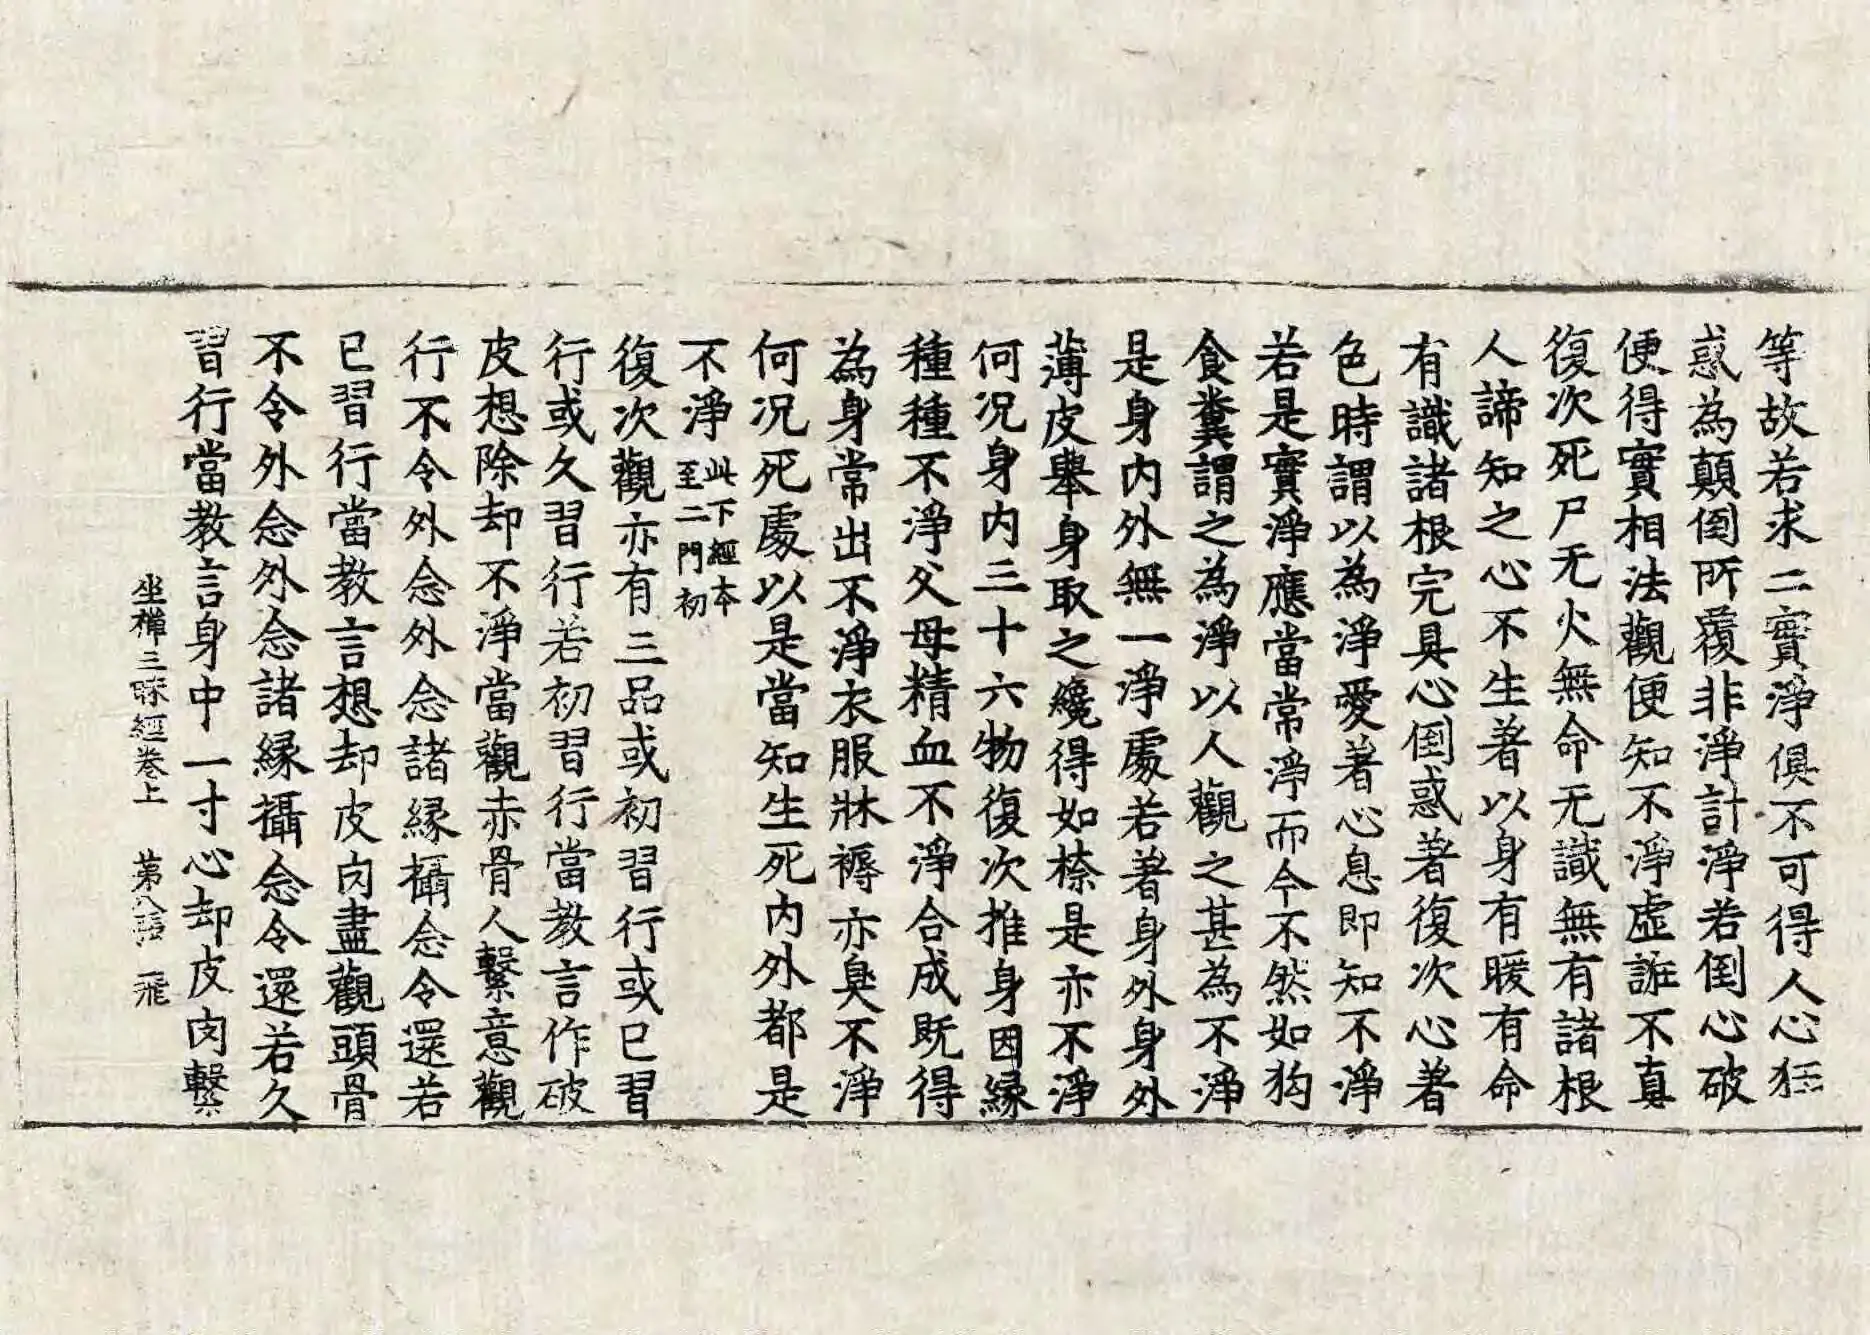 等故若求二實淨俱不可得人心狂
惑為顛倒所覆非淨計淨若倒心破
便得實相法觀便知不淨虛誑不真
復次死尸无火無命无識無有諸根
人諦知之心不生著以身有暖有命
有識諸根完具心倒惑著復次心著
色時謂以為淨愛著心息即知不淨
若是實淨應當常淨而今不然如狗
食糞謂之為淨以人觀之甚為不淨
是身內外無一淨處若著身外身外
薄皮舉身取之纔得如㮈是亦不淨
何況身內三十六物復次推身因緣
種種不淨父母精血不淨合成既得
為身常出不淨衣服牀褥亦臭不淨
何況死處以是當知生死內外都是
不淨 此下經本至二門初
復次觀亦有三品或初習行或已習
行或久習行若初習行當教言作破
皮想除却不淨當觀赤骨人繫意觀
行不令外念外念諸緣攝念令還若
已習行當教言想却皮肉盡觀頭骨
不令外念外念諸緣攝念令還若久
習行當教言身中一寸心却皮肉繫
坐禪三昧經卷上 第八張 飛